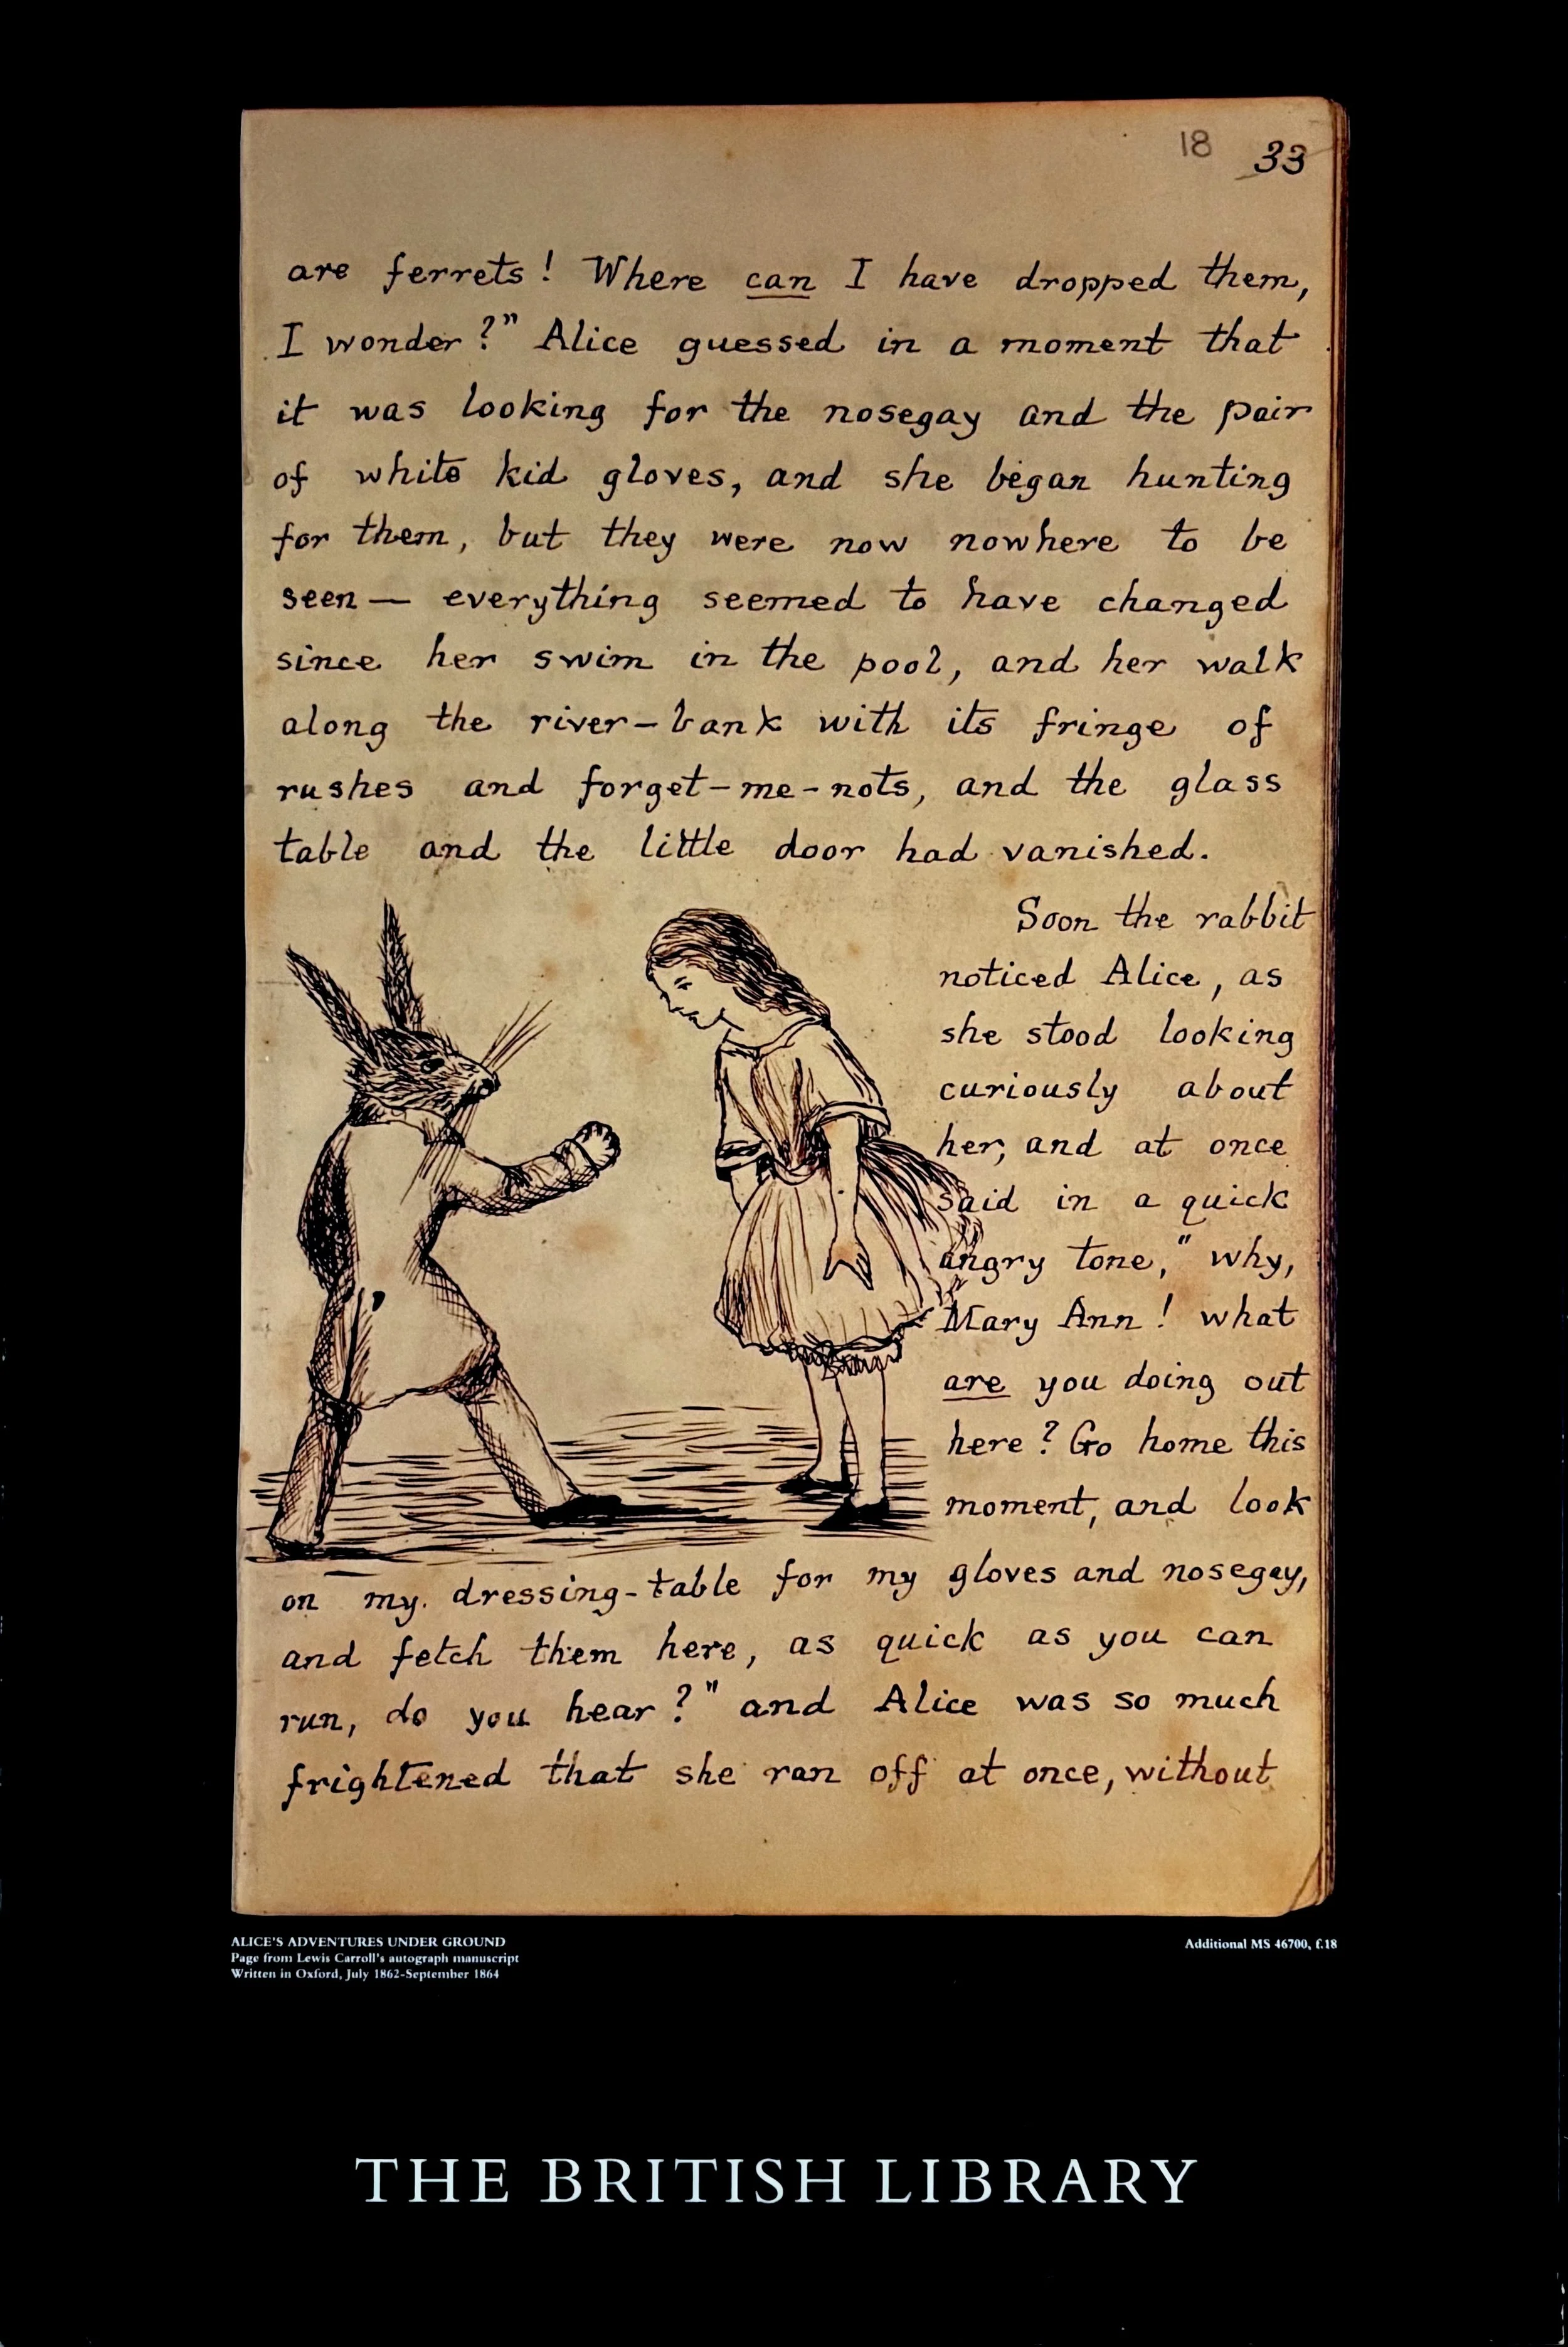 18 33
are ferrets! Where can I have dropped them,
I wonder?" Alice guessed in a moment that
it was looking for the nosegay and the pair
of white kid gloves, and she began hunting
for them, but they were now nowhere to be
seen — everything seemed to have changed
since her swim in the pool, and her walk
along the river-bank with its fringe of
rushes and forget-me-nots, and the glass
table and the little door had vanished.
Soon the rabbit
noticed Alice, as
she stood looking
curiously about
her, and at once
said in a quick
angry tone, "why,
Mary Ann! what
are you doing out
here? Go home this
moment, and look
on my dressing-table for my gloves and nosegay,
and fetch them here, as quick as you can
run, do you hear?" and Alice was so much
frightened that she ran off at once, without
ALICE'S ADVENTURES UNDER GROUND
Page from Lewis Carroll's autograph manuscript
Written in Oxford, July 1862-September 1864
Additional MS 46700, f.18
THE BRITISH LIBRARY